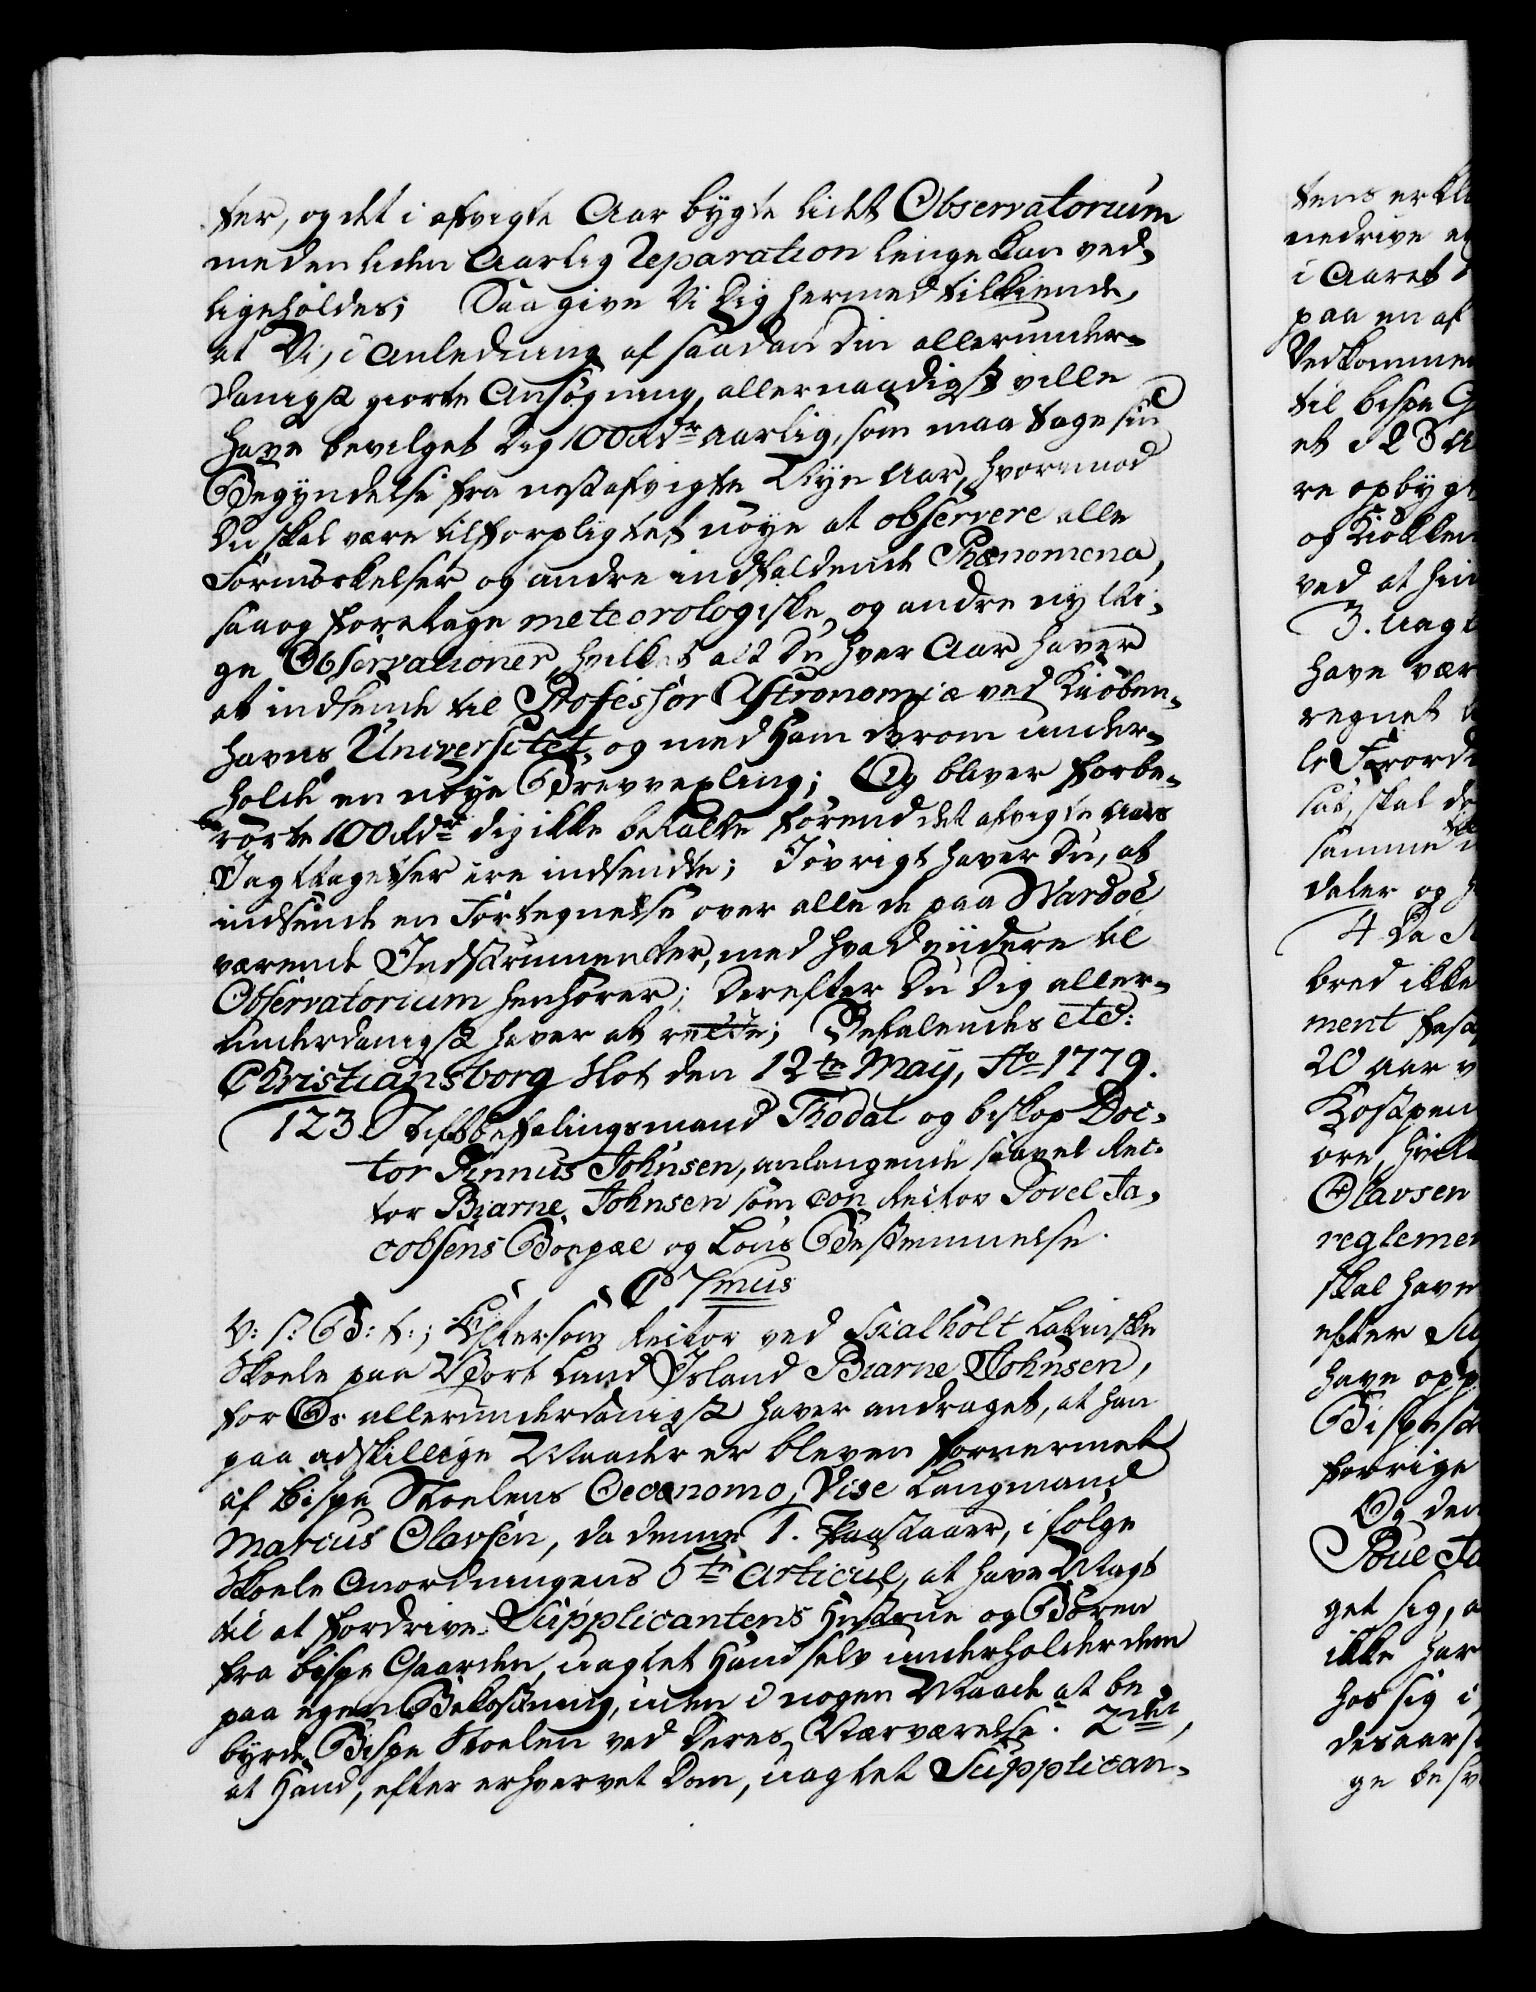 ter, og det i afvigte Aar bygte lidet Observatorium
med en liden Aarlig Reparation lenge kan ved¬
ligeholdes; Saa give Vi Dig hermed tilkiende,
at Vi, i Anledning af saadan Din allerunder¬
danigst giorte Ansøgning, allernaadigst ville
have bevilget Dig 100 Rdr Aarlig, som maa tage sin
Begyndelse fra nestafvigte Nyt Aar, hvorimod
Du skal være tilforpligtet nøye at observere alle
Formørkelser og andre indfaldende Phænomena,
saa og foretage meteorologiske og andre nytti¬
ge Observationer, hvilket alt Du hver Aar haver
at indsende til Professor Astronomiæ ved Kiøben¬
havns Universitet, og med Ham derom under¬
holde en nøye Brevvexling; Og bliver forbe¬
rørte 100 Rdr dig ikke betalte førend det afvigte Aars
Iagttagelser ere indsendte; Iøvrigt haver Du, at
indsende en Fortegnelse over alle de paa Wardøe
værende Instrumenter, med hvad viidere til
Observatorium henhører; Derefter Du Dig aller¬
underdanigst haver at rette; Befalendes etc:
Christiansborg Slot den 12te Maij, Ao 1779.
123. Stiftbefalingsmand Thodal og biskop Doc¬
tor Finnus Johnsen, anlangende saavel Rec¬
tor Biarne Johnsen som Con Rector Povel Ja¬
cobsens Boepæl og Løns Bestemmelse.
C 7mus
V: s: G: t:; Eftersom Rector ved Skalholt Latinske
Skoele paa Vort Land Island Biarne Johnsen,
for Os allerunderdanigst haver andraget, at han
paa adskillige Maader er bleven fornermet
af bispe Stoelens Oeconomo, Vise Laugmand
Marcus Olavsen, da denne 1. Paastaaer, i følge
Skoele Anordningens 6te Articul, at have Magt
til at fordrive Supplicantens Hustrue og Børen
fra bispe Gaarden, uagtet Hand selv underholder dem
paa egen Bekostning, uden i nogen Maade at be¬
byrde Bispe Stoelen ved Deres Nærværelse. 2det,
at Hand, efter erhvervet Dom, uagtet Supplican¬